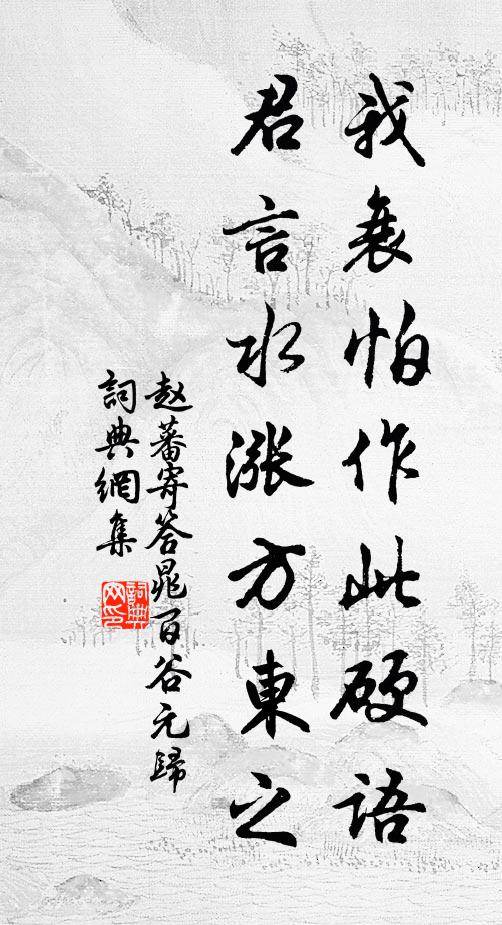 我衰怕作此硬语
君言水漲方東之
赵蕃寄答晁百谷元歸
詞典網集
詞典
网印